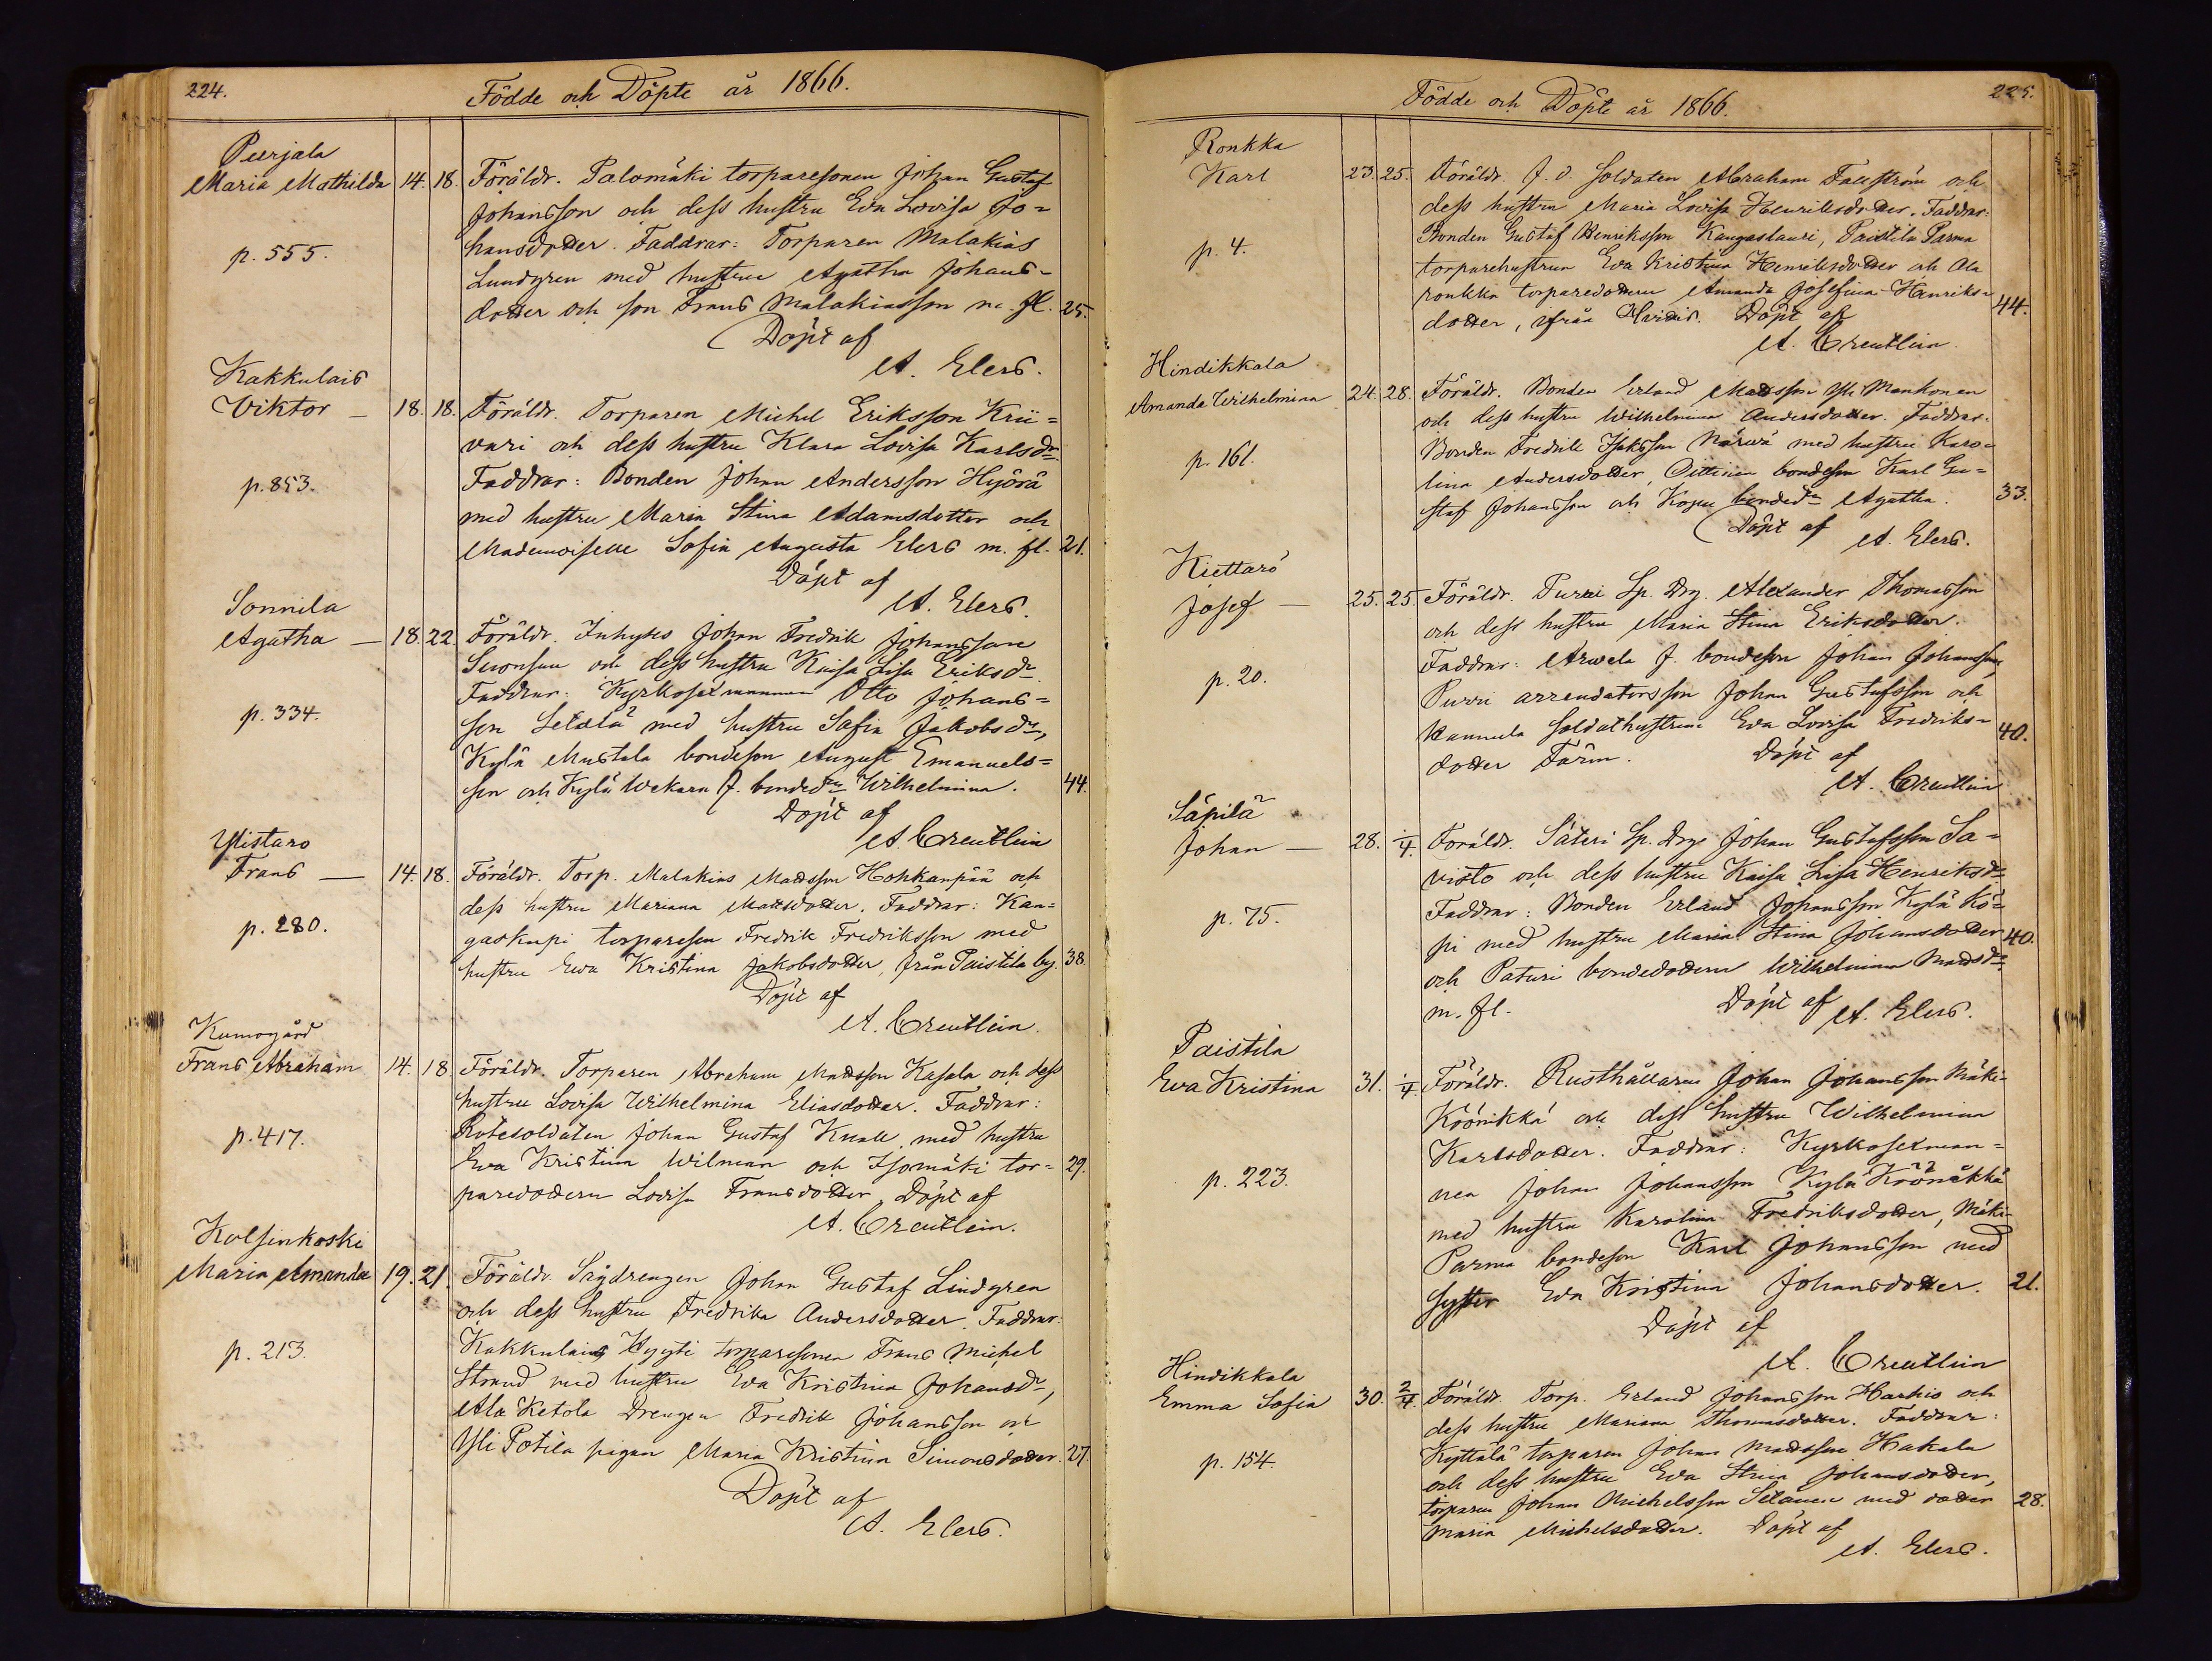 224.
Födde och Döpte år 1866.
Peerjala
Maria Mathilda 14. 18. Föräldr. Palomäki torparesonen Johan Gustaf
Johansson och dess hustru Eva Lovisa Jo=
hansdotter. Faddrar: Torparen Malakias
p. 555.
Lundgren med hustru Agatha Johans-
dotter och son Frans Malakiasson m. fl. 25.
Döpt af
A. Elers.
Kakkulais
Viktor – 18. 18. Föräldr. Torparen Michel Eriksson Krii=
vari och dess hustru Klara Lovisa Karlsdr
p. 853.
Faddrar: Bonden Johan Andersson Hyörä
med hustru Maria Stina Adamsdotter och
Mademoiselle Sofia Augusta Elers m. fl. 21.
Döpt af
A. Elers.
Sonnila
Agatha – 18. 22. Föräldr. Inhyses Johan Fredrik Johansson
och dess hustru Kaisa Lisa Eriksdr
Faddrar: Kyrkosexmannen Otto Johans=
p. 334.
son Setälä med hustru Sofia Jakobsdr,
Kylä Mustala bondeson August Emanuels=
son och Kylä Wekara f. bondedr Wilhelmina. 44.
Döpt af
A. Creutlein
Ylistaro
Frans – 14. 18. Föräldr. Torp. Malakias Mattsson Hohkanpää och
dess hustru Mariana Mattsdotter. Faddrar: Kan=
p. 280.
gaskupi torpareson Fredrik Fredriksson med
hustru Ewa Kristina Jakobsdotter, från Paistila by. 38.
Döpt af
A. Creutlein.
Kumogård
Frans Abraham 14. 18. Föräldr. Torparen Abraham Mattsson Kasala och dess
hustru Lovisa Wilhelmina Eliasdotter. Faddrar:
p. 417.
Rotesoldaten Johan Gustaf Knall med hustru
Eva Kristina Wilman och Isomäki tor= 29.
paredottern Lovisa Fransdotter. Döpt af
A. Creutlein.
Kolsinkoski
Maria Amanda 19. 21. Föräldr. Sågdrengen Johan Gustaf Lindgren
och dess hustru Fredrika Andersdotter. Faddrar:
p. 213.
Kakkulais torparesonen Frans Michel
Strand med hustru Eva Kristina Johansdr,
Ala Ketola Drengen Fredrik Johansson och
Yli Potila pigan Maria Kristina Simonsdotter. 27.
Döpt af
A. Elers.
225.
Födde och Döpte år 1866.
Ronkka
Karl 23. 25. Föräldr. f. d. Soldaten Abraham Fallström och
dess hustru Maria Lovisa Henriksdotter. Faddrar:
p. 4.
Bonden Gustaf Henriksson Kangaslauri, Paistila Parma
torparehustrun Eva Kristina Henriksdotter och Ala
ronkka torparedottern Amanda Josefina Henriks- 44.
dotter, från Hvittis. Döpt af
A. Creutlein.
Hindikkala
Amanda Wilhelmina 24. 28. Föräldr. Bonden Erland Mattsson Yli Mankonen
och dess hustru Wilhelmina Andersdotter. Faddrar:
p. 161.
Bonden Fredrik Isaksson Närwä med hustru Karo-
lina Andersdotter, Oittinen bondeson Karl Gu=
staf Johansson och bondedr Agatha. 33.
Döpt af
A. Elers.
Kiettarö
Josef – 25. 25. Föräldr. Purri Sp. Drg. Alexander Thomasson
och dess hustru Maria Stina Eriksdotter.
p. 20.
Faddrar: Arwela f. bondeson Johan Johansson,
Purri arrendatorsson Johan Gustafsson och
Kannula Soldathustrun Eva Lovisa Fredriks- 40.
dotter Färm. Döpt af
A. Creutlein
Säpilä
Johan – 28. 1/4. Föräldr. Säteri Sp. Drg. Johan Gustafsson Sa-
visto och dess hustru Kaisa Lisa Henriksdr
p. 75.
Faddrar: Bonden Erland Johansson Kylä Kö=
pi med hustru Maria Stina Johansdotter 40.
och Paturi bondedottern Wilhelmina Mattsdr
m. fl. Döpt af
A. Elers.
Paistila
Eva Kristina 31. 1/4. Föräldr. Rusthållaren Johan Johansson Mäki-
Krönikkä och dess hustru Wilhelmina
Karlsdotter. Faddrar: Kyrkosexman=
p. 223.
nen Johan Johansson Kylä Krönikkä
med hustru Karolina Fredriksdotter, Mäki-
Parma bondeson Karl Johansson med
syster Eva Kristina Johansdotter. 21.
Döpt af
A. Creutlein
Hindikkala
Emma Sofia 30. 2/4. Föräldr. Torp. Erland Johansson Harhio och
dess hustru Mariana Thomasdotter. Faddrar:
p. 154.
Kyttälä torparen Johan Mattsson Hakala
och dess hustru Eva Stina Johansdotter,
torparen Johan Michelsson Sillanen med dotter 28.
Maria Michelsdotter. Döpt af
A. Elers.